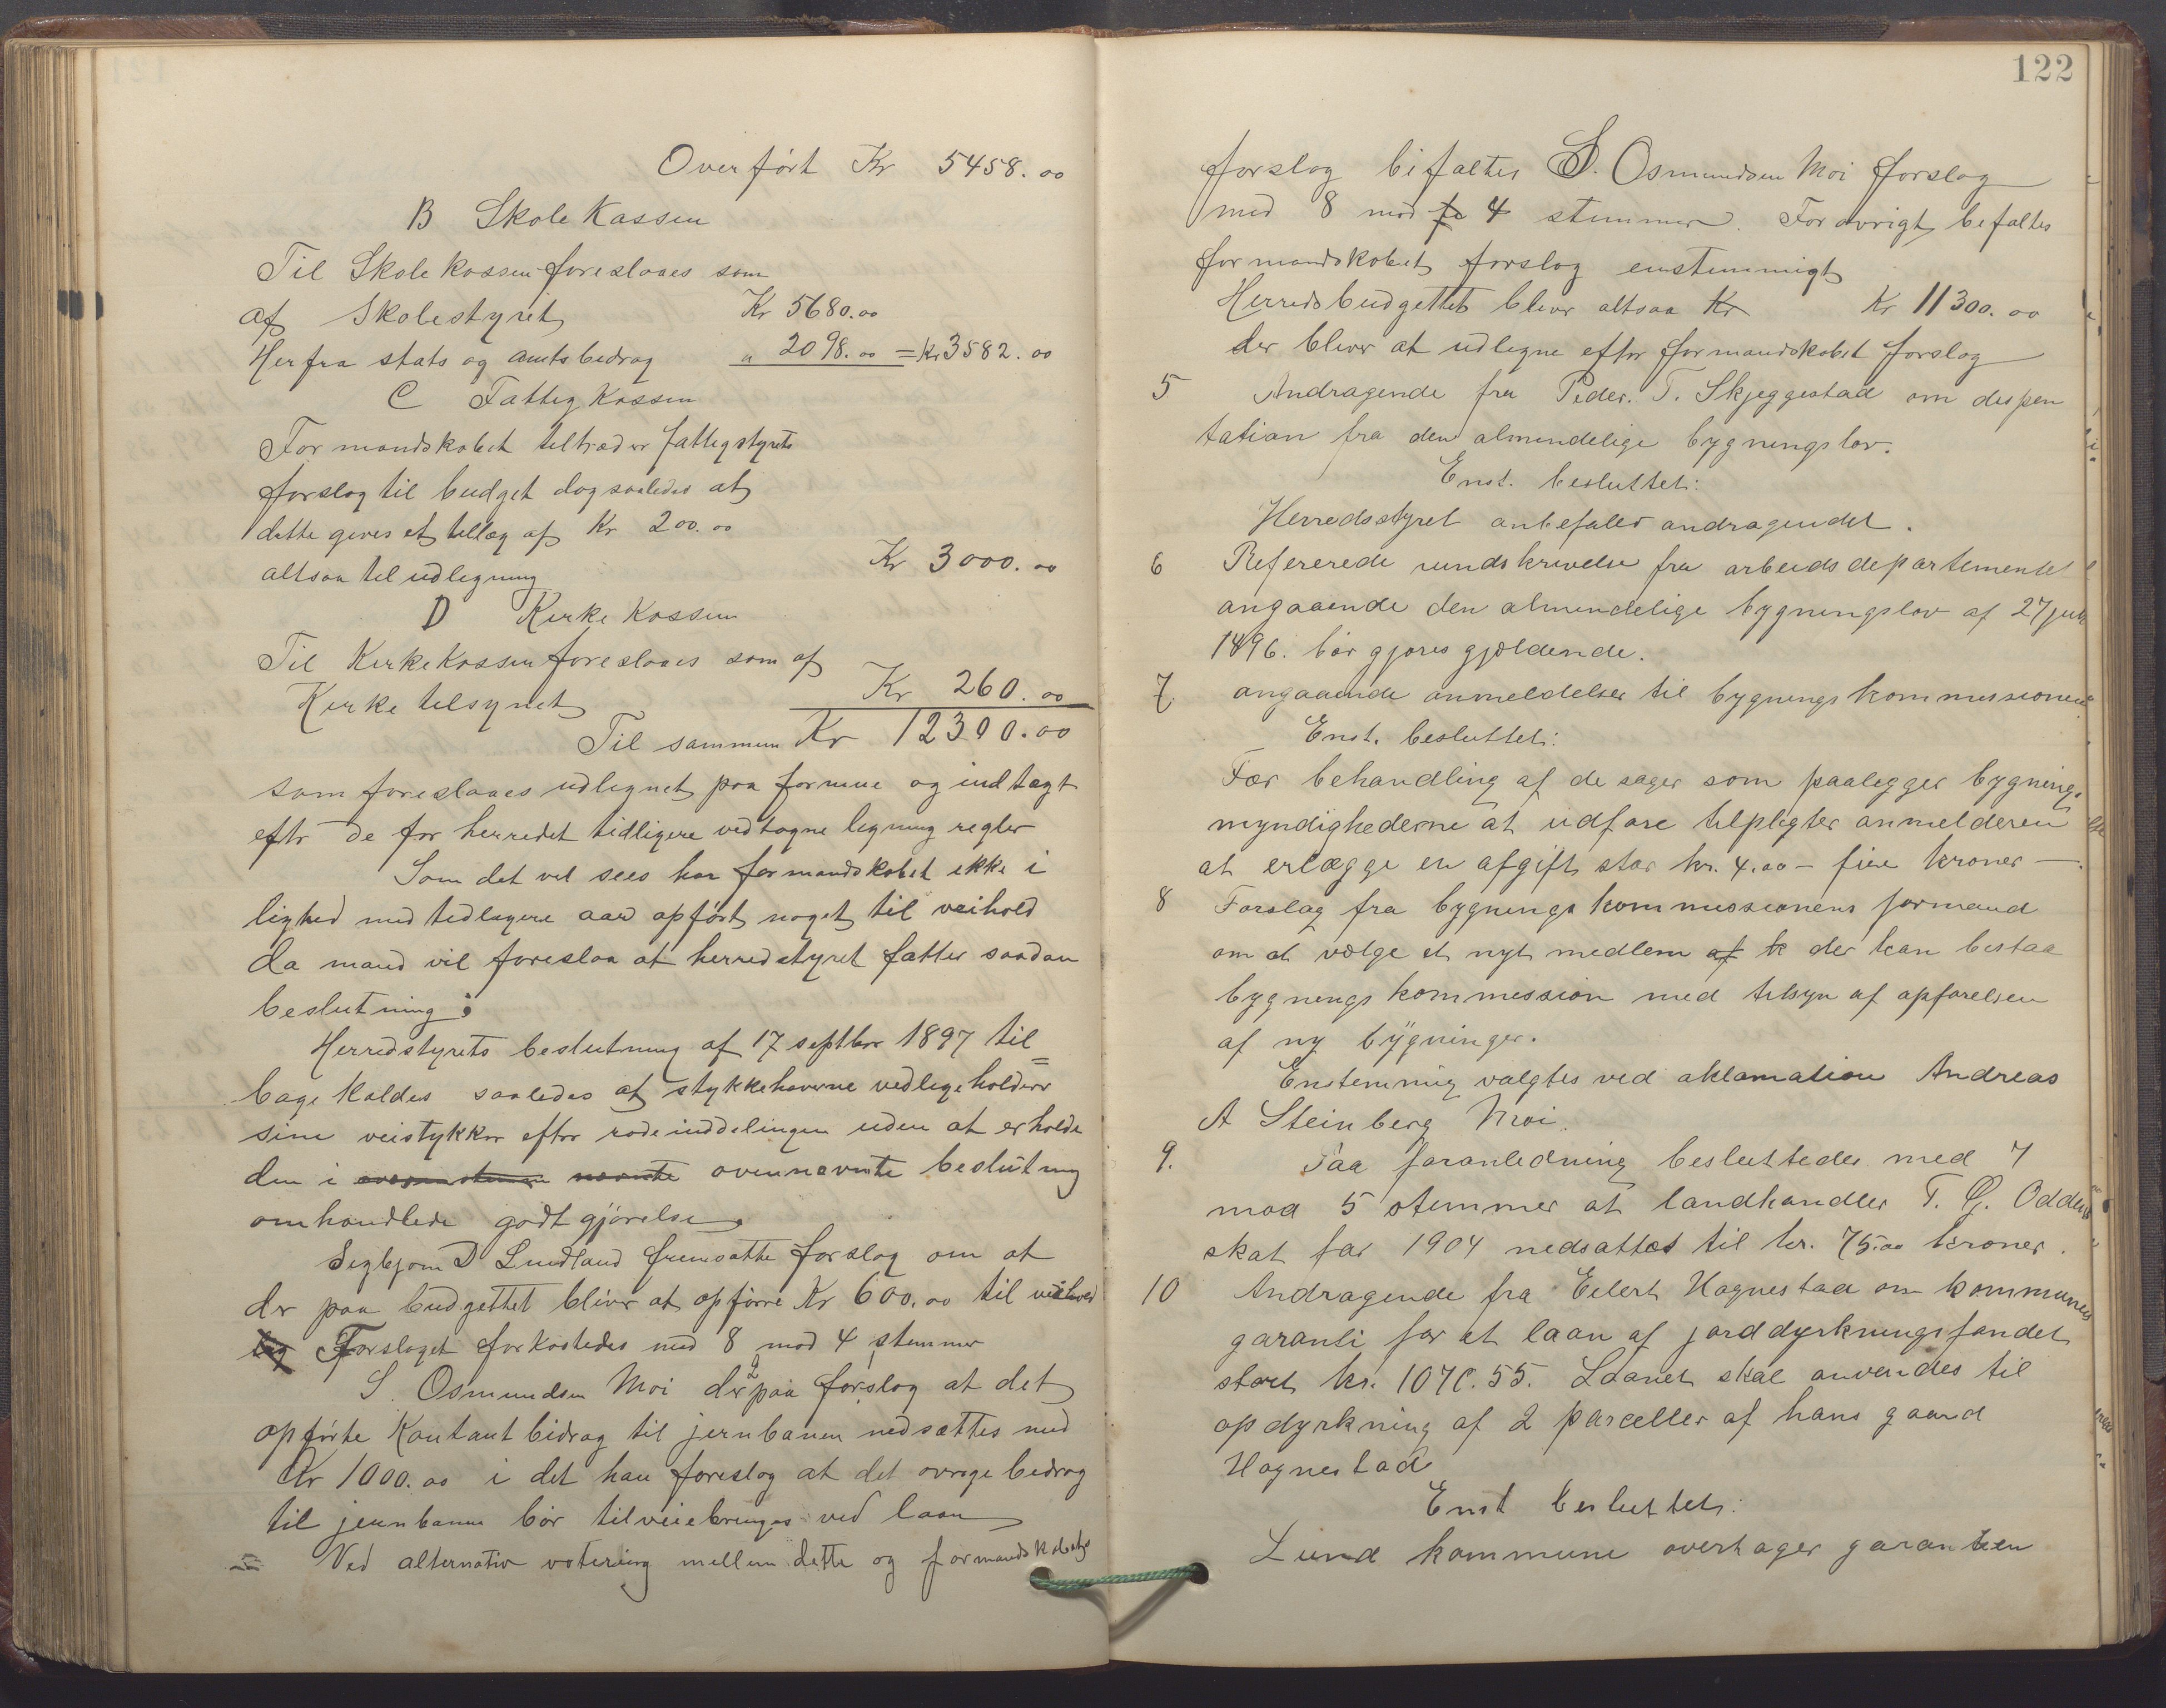 Overført Kr 5458.00
B Skole Kassen
Til Skole kassen foreslaaes som
af Skolestyret Kr 5680.00
Herfra stats og amtsbedrag " 2098.00 = Kr 3582.00
C Fattig Kassen
Formandskabet tiltræder fattigstyrets
forslag til budget dog saaledes at
dette gives et tillæg af Kr 200.00
altsaa til udlegning Kr 3000.00
D Kirke Kassen
Til Kirke Kassen foreslaaes som af
Kirke tilsynet Kr 260.00
Til sammen Kr 12300.00
som foreslaaes udlignet paa formue og indtægt
efter de for herredet tidligere vedtagne ligning regler
Som det vel sees har formandskabet ikke i
lighed med tidligere aar opført noget til veihold
da mand vil foreslaa at herredstyret fatter saadan
beslutning:
Herredstyrets beslutning af 17 septbr 1897 til=
bage kaldes saaledes at stykkehaverne vedligeholder
sine veistykker efter rodeinddelingen uden at erholde
den i ovennævnte beslutning
omhandlede godtgjørelse.
Sigbjørn D Lundland fremsatte forslag om at
der paa budgettet bliver at opføre Kr 600.00 til veihold
Forslaget forkastedes med 8 mod 4 stemmer
S. Osmundsen Moi derpaa forslag at det
opførte Kontant bidrag til jernbanen nedsættes med
Kr 1000.00 i det han foreslog at det øvrige bedrag
til jernbanen bør tilveiebringes ved laan
Ved alternativ votering mellem dette og formandskabets
122
forslag bifaltes S. Osmundsen Moi forslag
med 8 mod 4 stemmer. Forøvrigt befaltes
formandskabets forslag enstemmigt
Herredsbudgettet bliver altsaa Kr Kr 11300.00
der bliver at udligne efter formandskabet forslag
5 Andragende fra Peder. T. Skjeggestad om dispen
tation fra den almindelige bygningslov.
Enst. besluttet:
Herredsstyret anbefaler andragendet.
6 Refererede rundskrivelse fra arbeidsdepartementet
angaaende den almindelige bygningslov af 27 juni
1896. bør gjøres gjældende.
7. angaaende anmeldelser til bygningskommissionen
Enst. besluttet:
For behandling af de sager som paalegger bygnings
myndighederne at udføre tilpligter anmelderen
at erlægge en afgift stor kr. 4.00 – fire kroner –.
8 Forslag fra bygningskommissionens formand
om at vælge et nyt medlem af k der kan bestaa
bygningskommission med tilsyn af opførelsen
af ny bygninger.
Enstemmig valgtes ved aklamation Andreas
A Steinberg Moi.
9. Paa foranledning besluttedes med 7
mod 5 stemmer at landhandler T. G. Odden
skat for 1904 nedsattes til kr. 75.00 kroner.
10 Andragende fra Eilert Hagnestad om kommunens
garanti for et laan af jorddyrkningsfondet
stort kr. 1070.55. Laanet skal anvendes til
opdyrkning af 2 parceller af hans gaard
Hagnestad
Enst besluttet:
Lund kommune overtager garantien